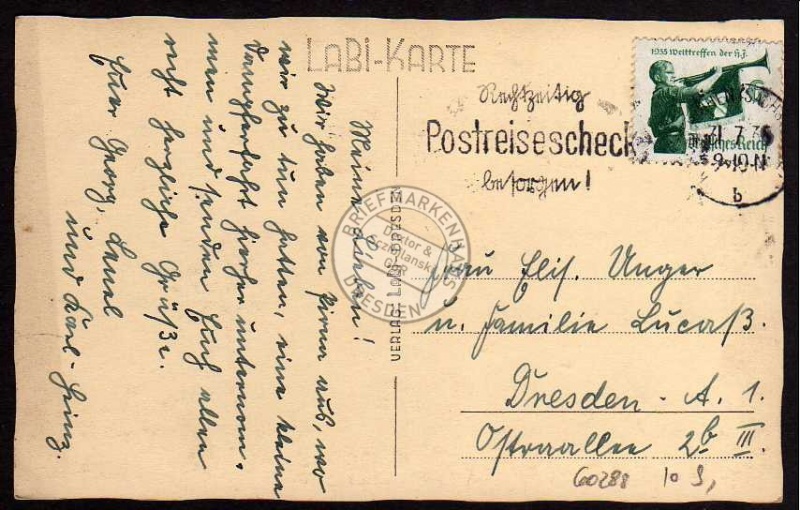 LABI-KARTE
Rechtzeitig
Postreisescheck
besorgen!
1935 Welttreffen der H.J.
Deutsches Reich
6
9-10 N
b
Meine Lieben!
Wir haben von Pirna aus, wo
wir zu tun hatten, eine kleine
Dampferfahrt hierher unternom-
men und senden Euch allen
recht herzliche Grüße.
Euer Georg,
und Karl-Heinz.
VERLAG LABI-DRESDEN
BRIEFMARKENHAUS
Doktor &
Sczpalanski
GbR
DRESDEN
Frau Elis. Unger
u. Familie Lucaß.
Dresden - A. 1.
Ostraallee 2b III.
60288 10 S,